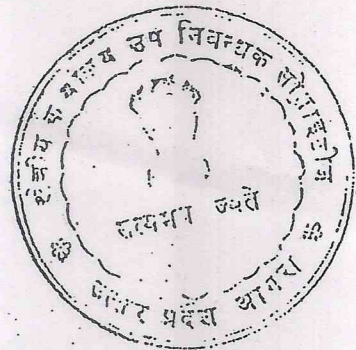 क्षेत्रीय कार्यालय उप निबन्धक सोसाइटीज
सत्यमेव जयते
उत्तर प्रदेश आगरा